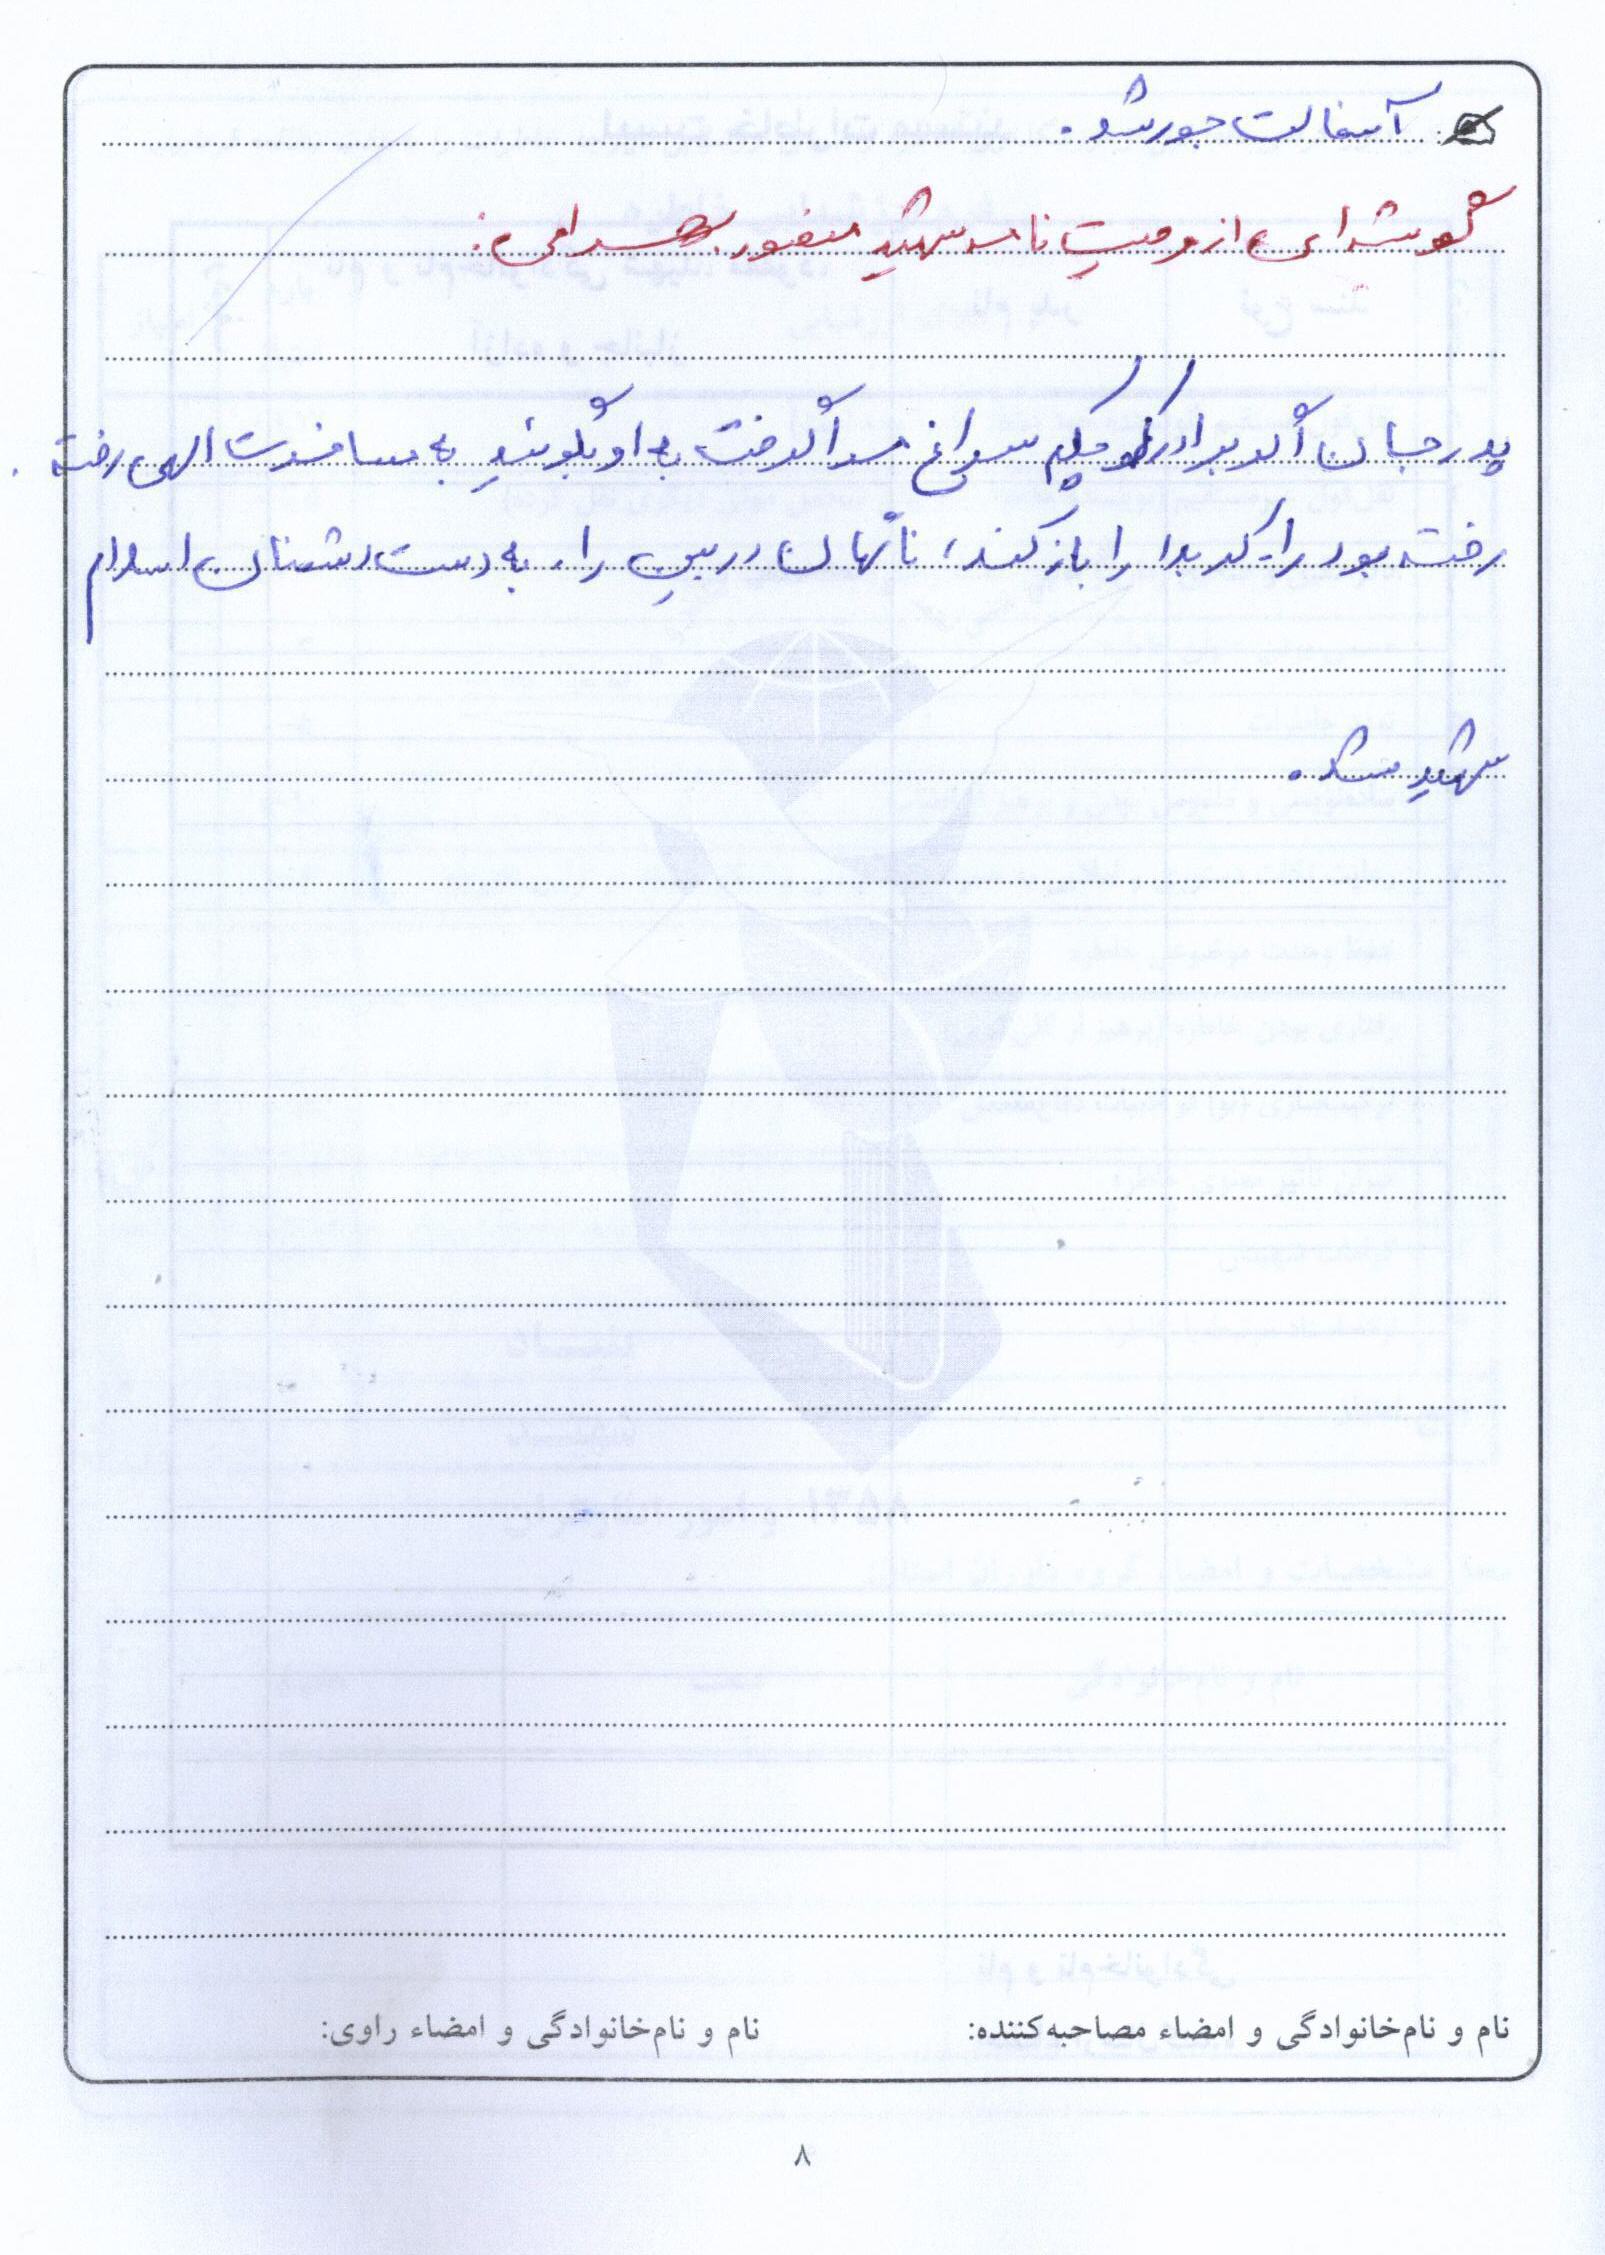 آسفالت جور شد.
گوشه ای از وصیت نامه شهید منصور بهرامی:
پدر جان اگر برادر کوچکم سراغ مرا گرفت به او بگوئید به مسافرت الهی رفته.
رفته بود راه کربلا را باز کند، ناگهان در بین راه به دست دشمنان اسلام
شهید شد.
نام و نام‌خانوادگی و امضاء مصاحبه‌کننده: نام و نام‌خانوادگی و امضاء راوی:
۸